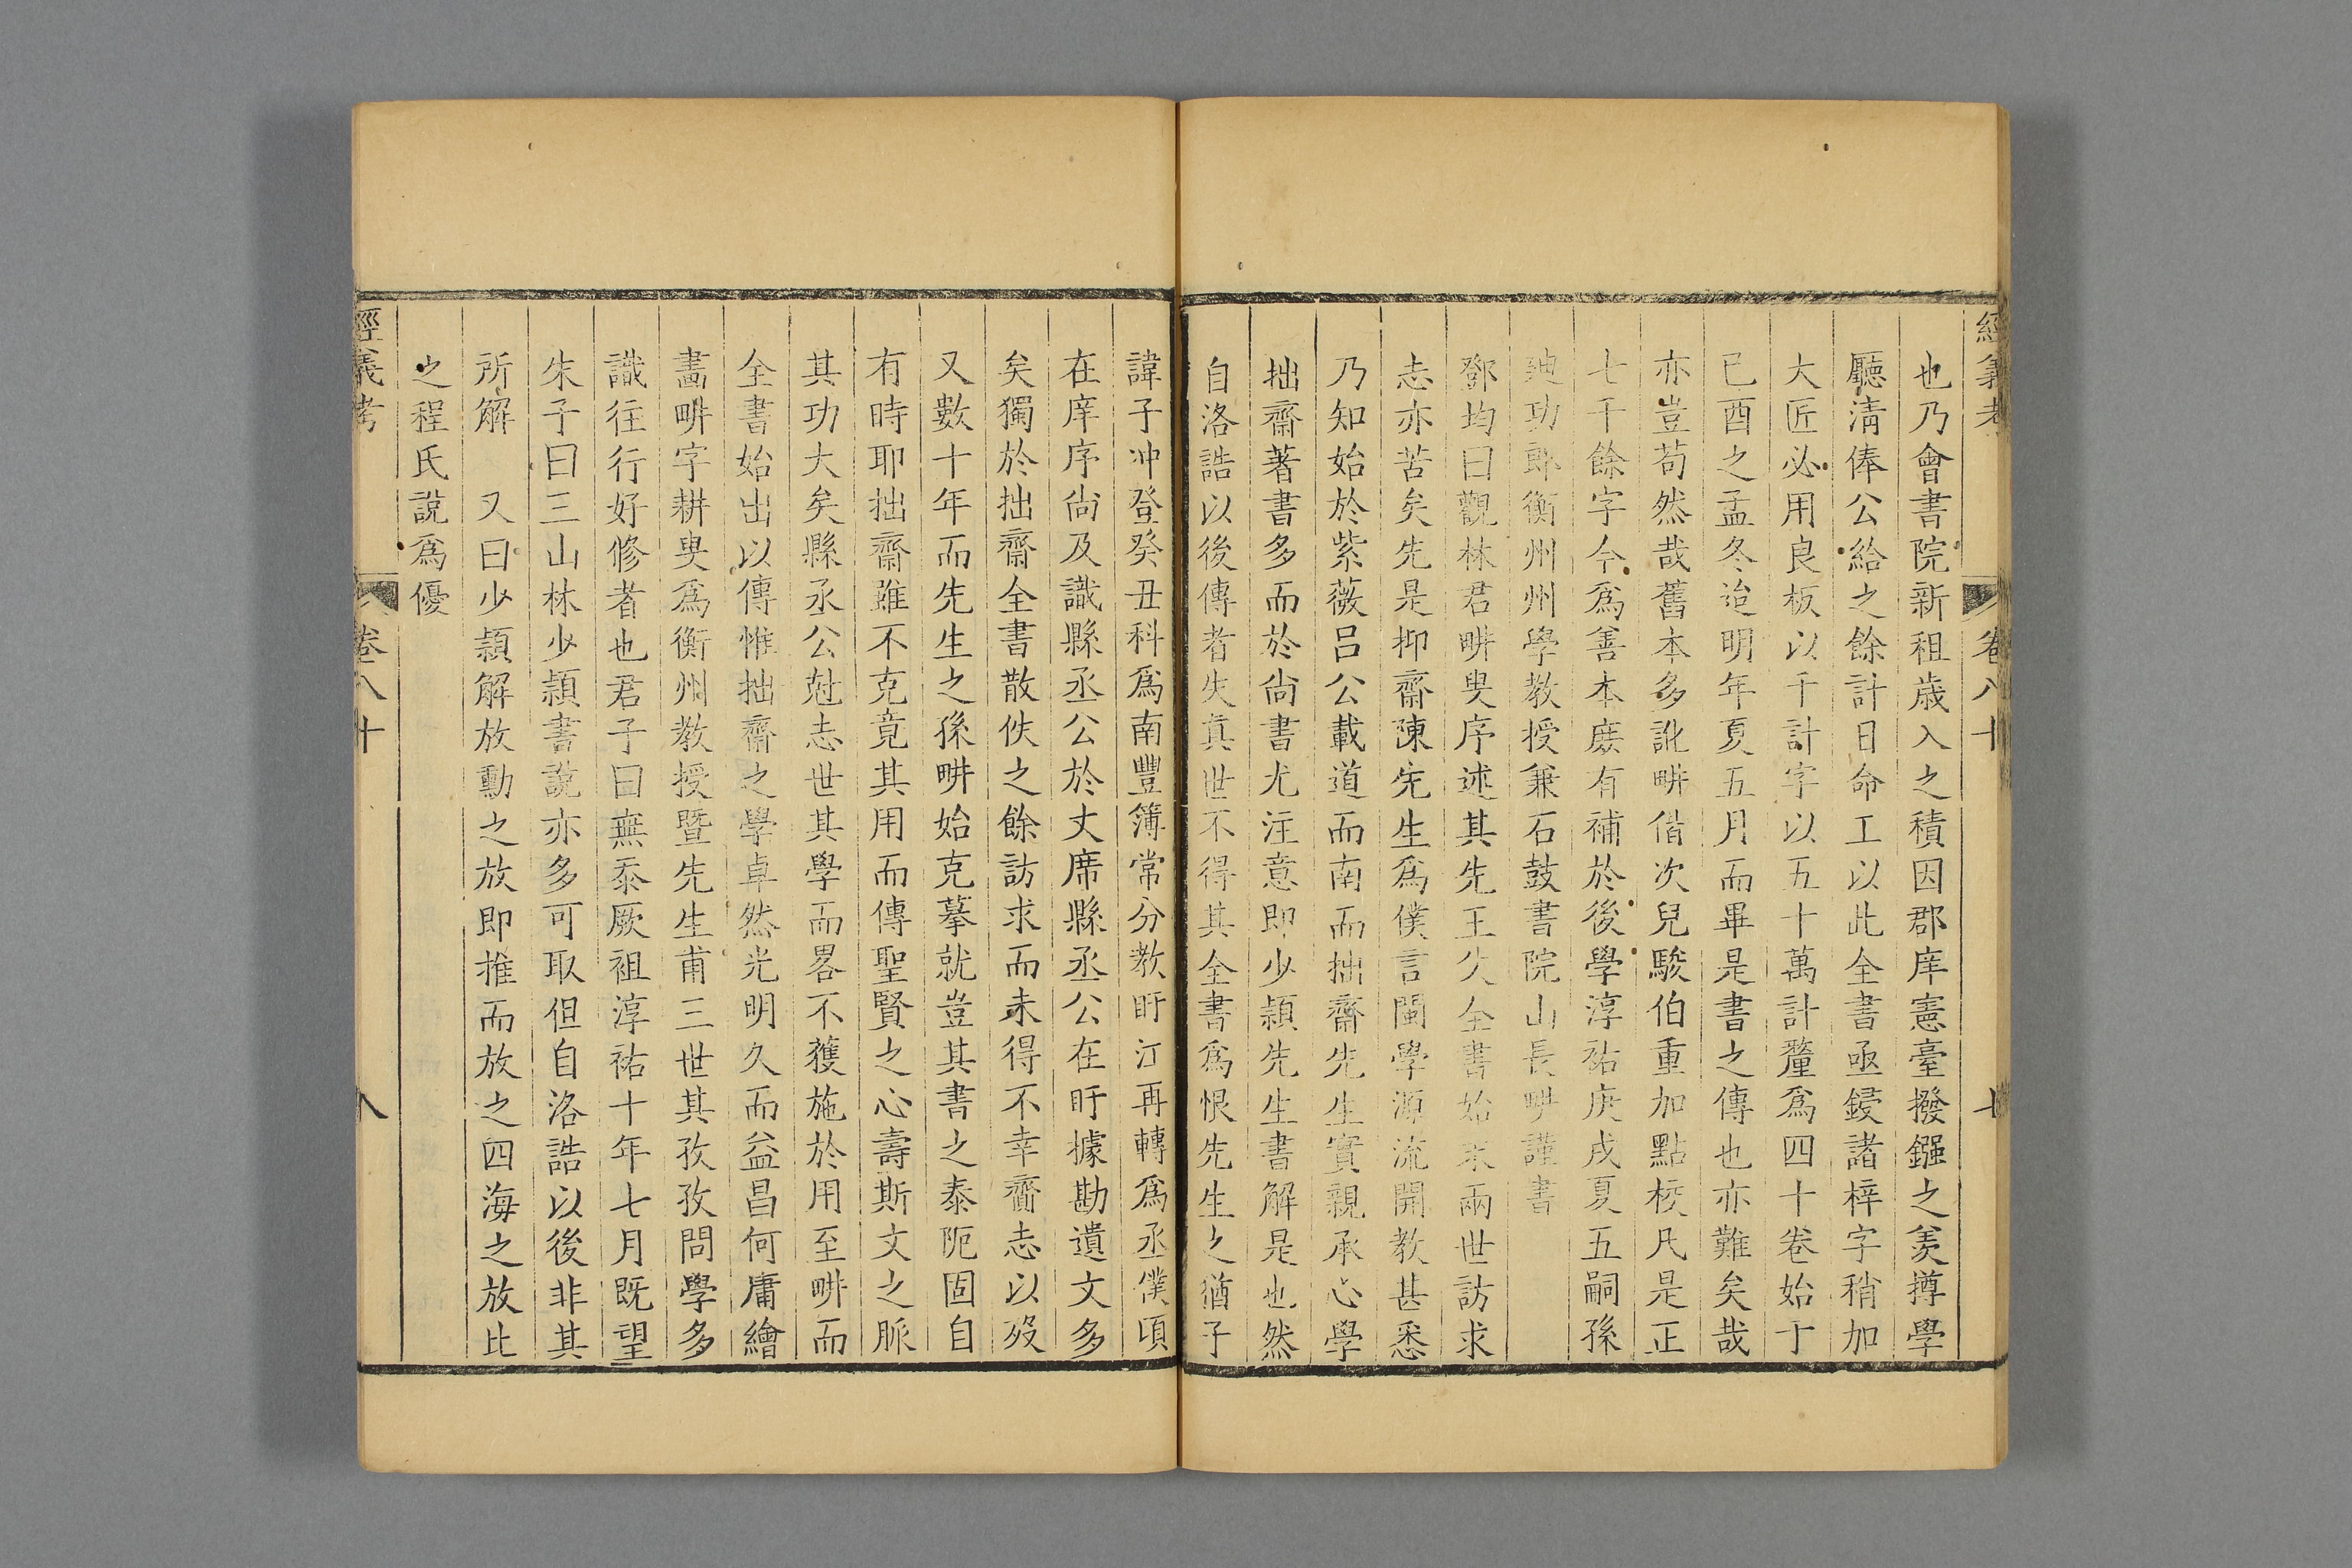 經義考 卷八十 七
也乃會書院新租歳入之積因郡庠憲臺撥鏹之羨撙學
廳淸俸公給之餘計日命工以此全書亟鋟諸梓字稍加
大匠必用良板以千計字以五十萬計釐爲四十卷始于
已酉之孟冬迨明年夏五月而畢是書之傳也亦難矣哉
亦豈苟然哉舊本多訛畊偕次兒駿伯重加點校凡是正
七千餘字今爲善本庶有補於後學淳祐庚戌夏五嗣孫
廸功郎衡州州學教授兼石鼓書院山長畊謹書
鄧均曰觀林君畊叟序述其先王父全書始末兩世訪求
志亦苦矣先是抑齋陳先生爲僕言閩學源流開教甚悉
乃知始於紫薇呂公載道而南而拙齋先生實親承心學
拙齋著書多而於尚書尤注意即少穎先生書解是也然
自洛誥以後傳者失真世不得其全書爲恨先生之猶子
諱子冲登癸丑科爲南豐簿常分教盱江再轉爲丞僕頃
在庠序尚及識縣丞公於丈席縣丞公在盱據勘遺文多
矣獨於拙齋全書散佚之餘訪求而未得不幸齎志以歿
又數十年而先生之孫畊始克摹就豈其書之泰阨固自
有時耶拙齋雖不克竟其用而傳聖賢之心壽斯文之脈
其功大矣縣丞公尅志世其學而畧不獲施於用至畊而
全書始出以傳惟拙齋之學卓然光明久而益昌何庸繪
畵畊字耕叟爲衡州教授暨先生甫三世其孜孜問學多
識往行好修者也君子曰無忝厥祖淳祐十年七月既望
朱子曰三山林少穎書說亦多可取但自洛誥以後非其
所解　又曰少穎解放勳之放即推而放之四海之放比
之程氏說爲優
經義考 卷八十 八